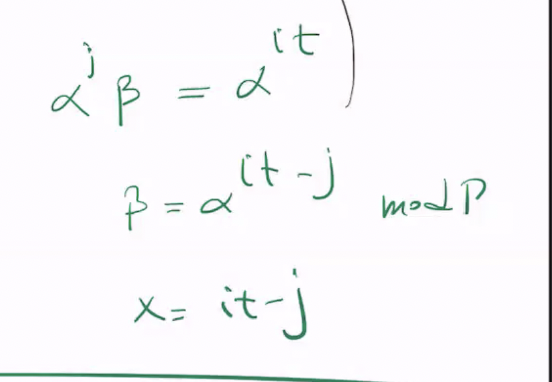 α^j β = α^{it} )
β = α^{it-j} mod P
x = it-j